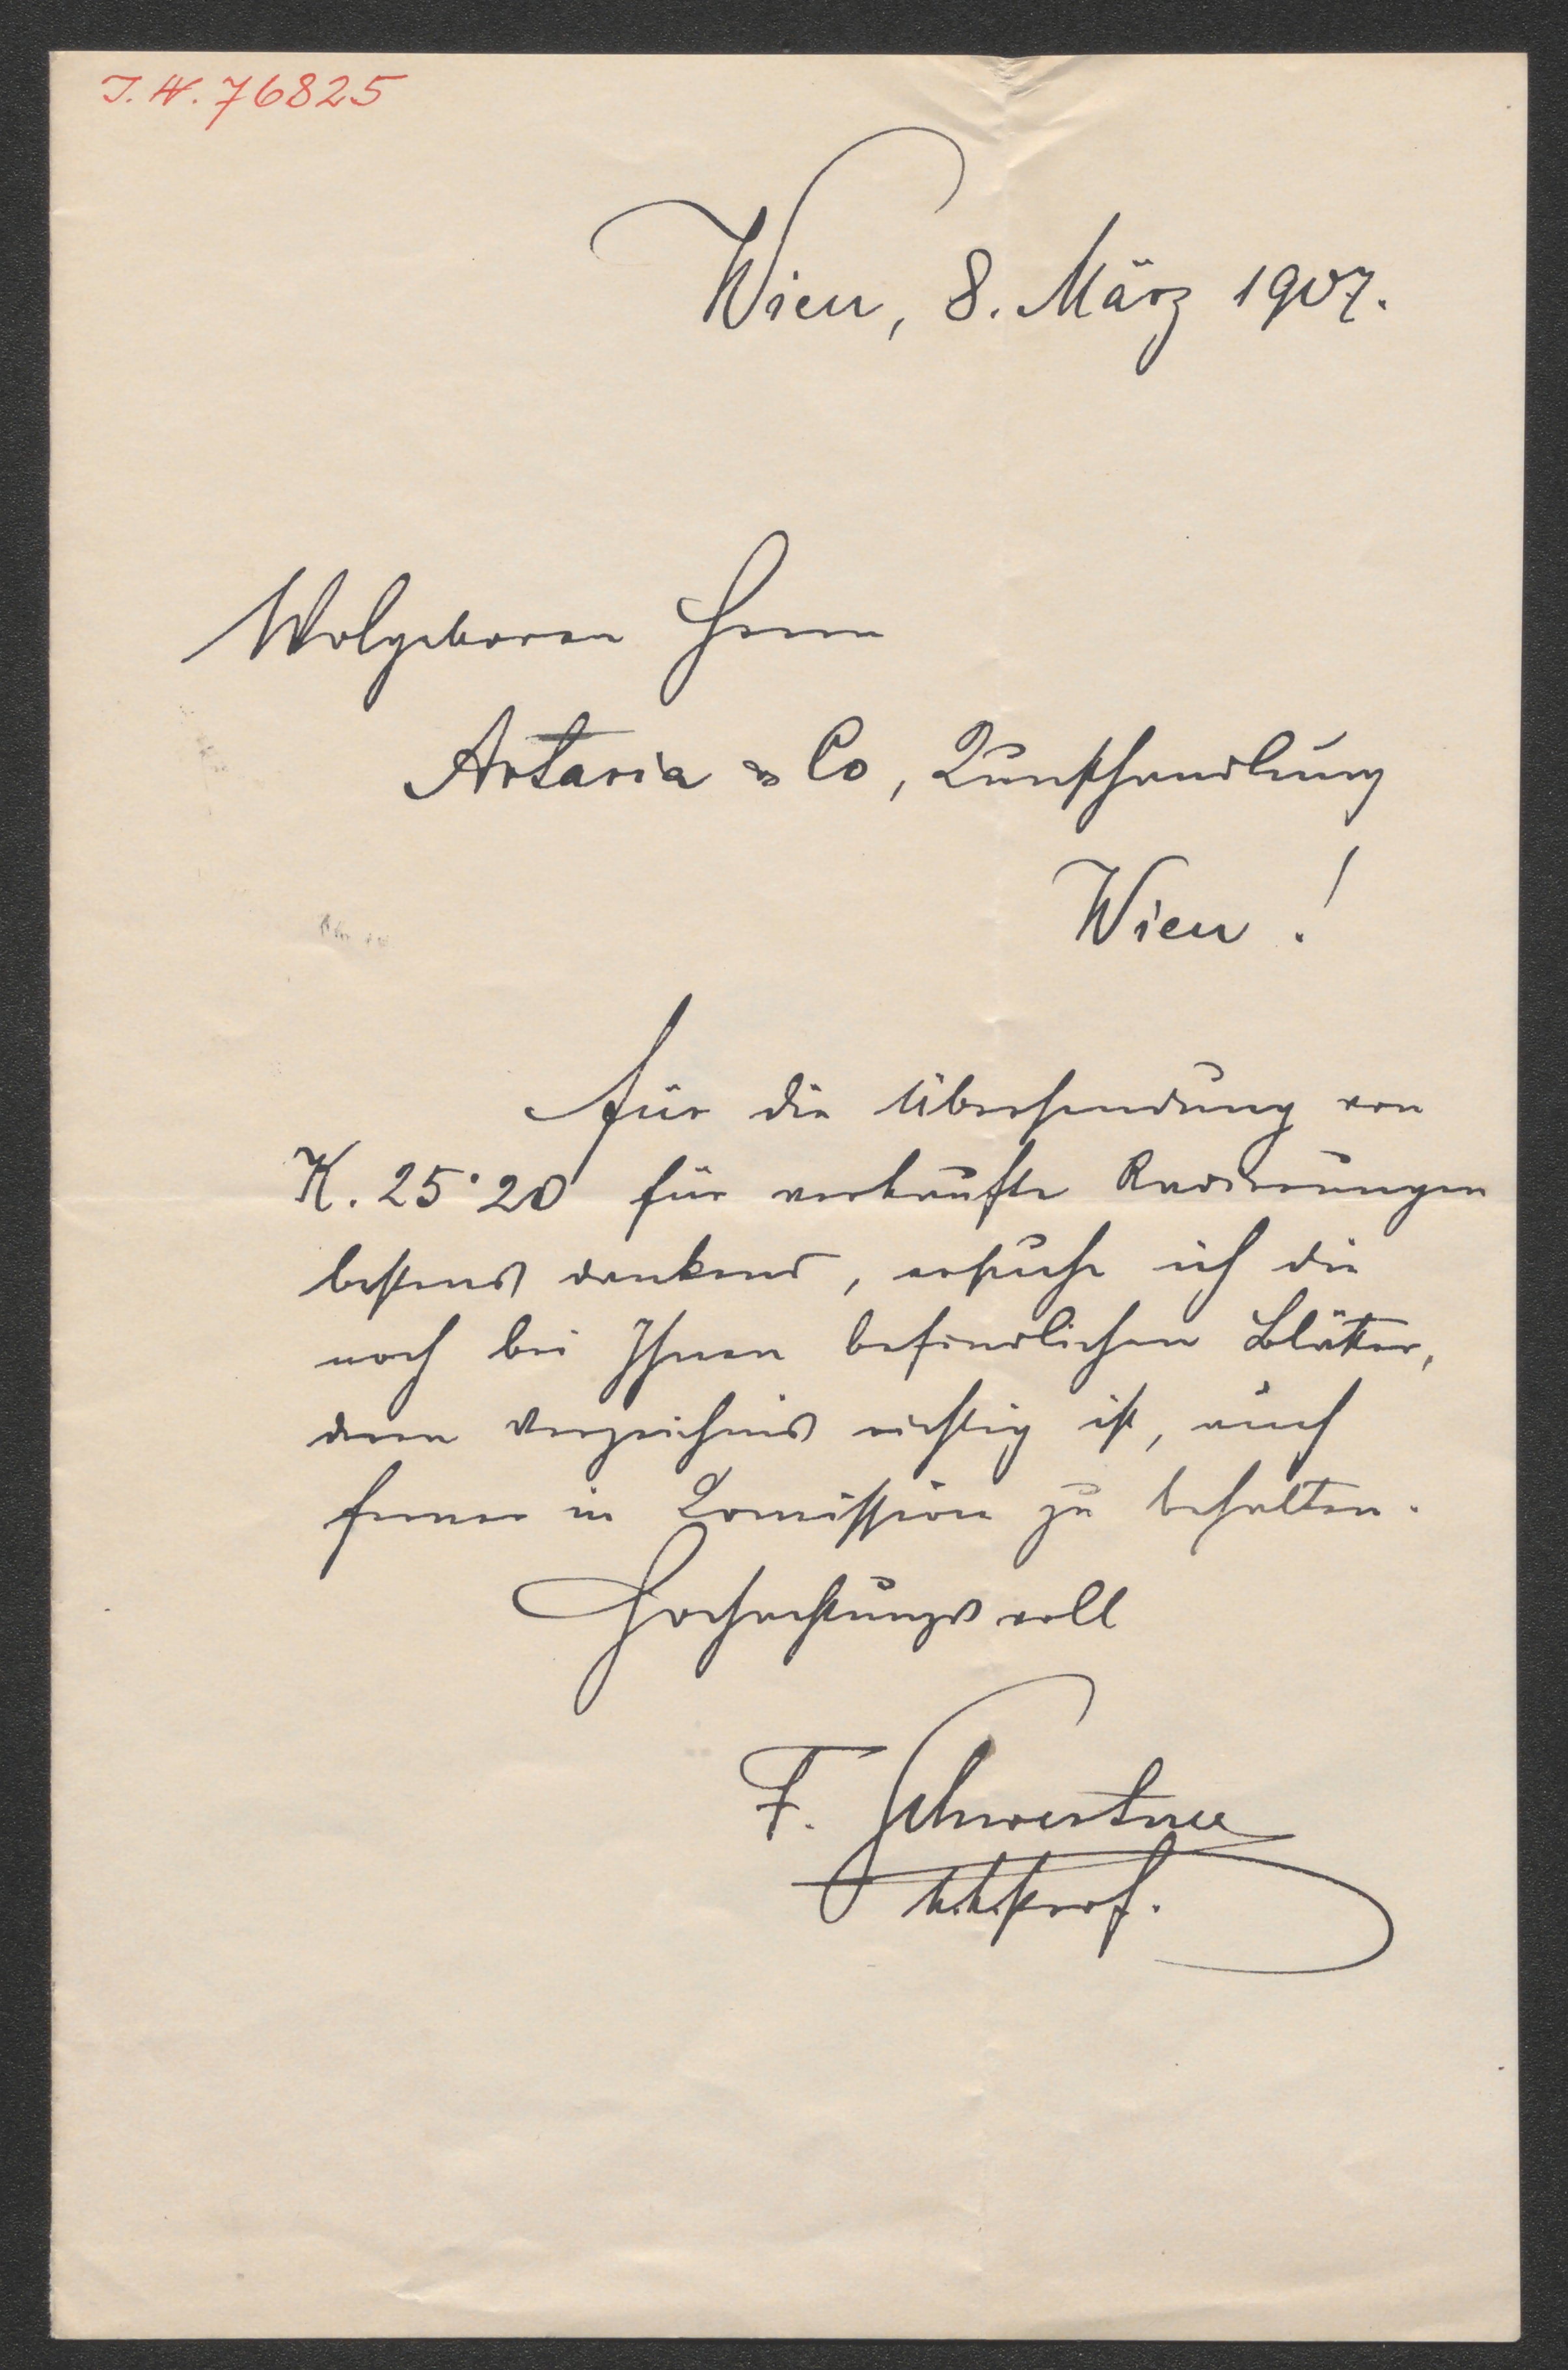 I.N. 76825
Wien, 8. März 1907.
Wolgeboren Herrn
Artaria & Co, Kunsthandlung
Wien !
Für die Übersendung von
K. 25·20 für verkaufte Radierungen
bestens dankend, ersuche ich die
noch bei Ihnen befindlichen Blätter,
deren Verzeichnis richtig ist, auch
ferner in Comission zu behalten.
Hochachtungsvoll
F. Schwertner
k.k. Prof.